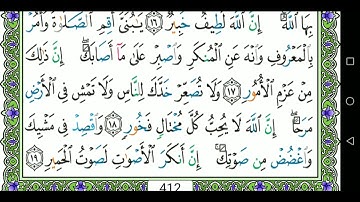 بِهَا اللَّهُ ۚ إِنَّ اللَّهَ لَطِيفٌ خَبِيرٌ ﴿١٦﴾ يَا بُنَيَّ أَقِمِ الصَّلَاةَ وَأْمُرْ
بِالْمَعْرُوفِ وَانْهَ عَنِ الْمُنْكَرِ وَاصْبِرْ عَلَىٰ مَا أَصَابَكَ ۖ إِنَّ ذَٰلِكَ
مِنْ عَزْمِ الْأُمُورِ ﴿١٧﴾ وَلَا تُصَعِّرْ خَدَّكَ لِلنَّاسِ وَلَا تَمْشِ فِي الْأَرْضِ
مَرَحًا ۖ إِنَّ اللَّهَ لَا يُحِبُّ كُلَّ مُخْتَالٍ فَخُورٍ ﴿١٨﴾ وَاقْصِدْ فِي مَشْيِكَ
وَاغْضُضْ مِنْ صَوْتِكَ ۚ إِنَّ أَنْكَرَ الْأَصْوَاتِ لَصَوْتُ الْحَمِيرِ ﴿١٩﴾
412